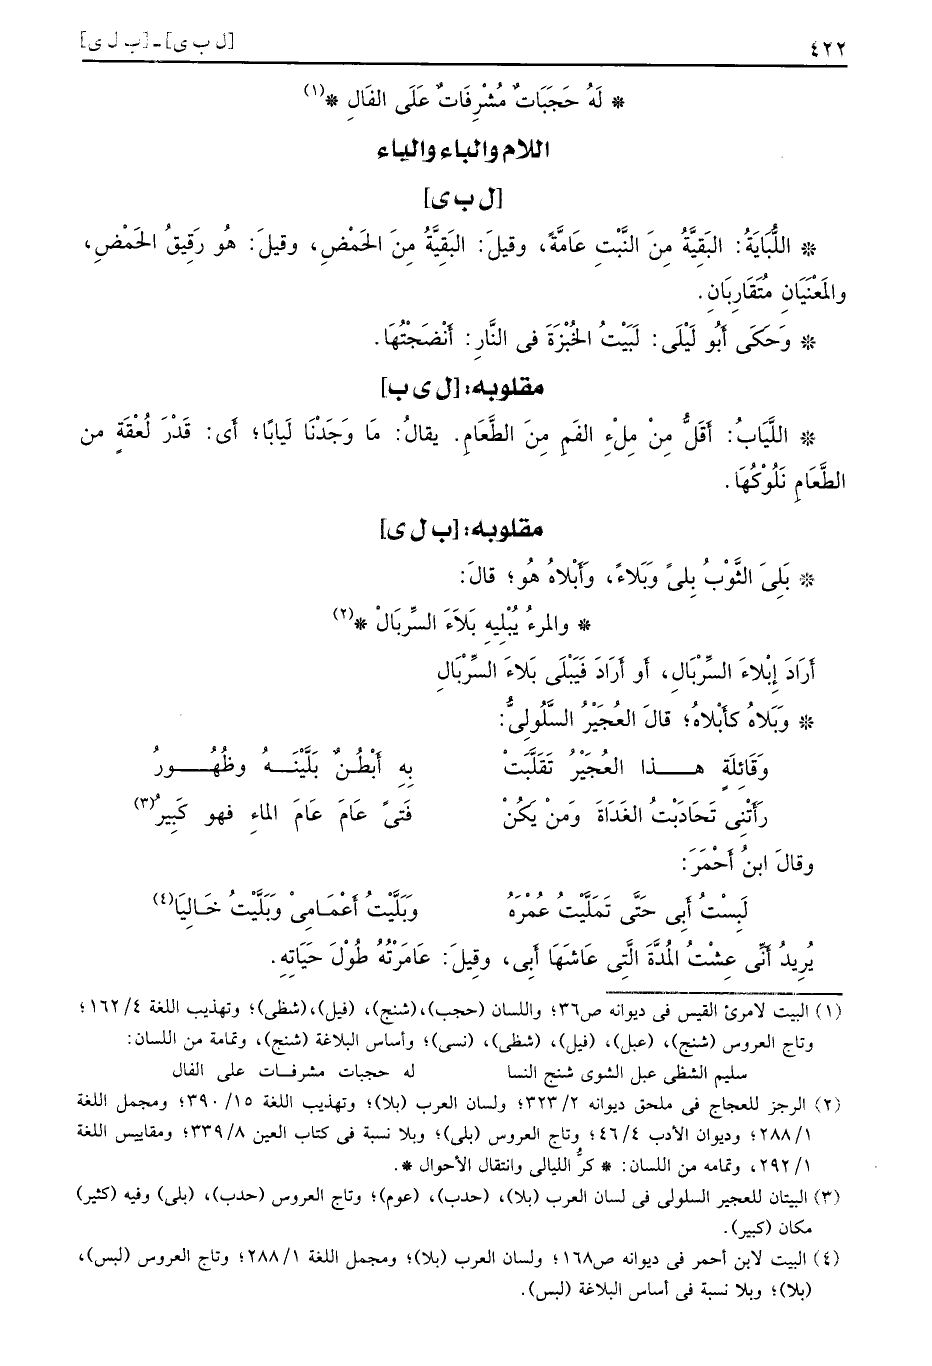 ٤٢٢ [ل ب ى] - [ب ل ى]
* لَهُ حَجَبَاتٌ مُشْرِفَاتٌ عَلَى الفَالِ *(١)
اللام والباء والياء
[ل ب ى]
* اللُّبَايَةُ: البَقِيَّةُ مِنَ النَّبْتِ عَامَّةً، وقيلَ: البَقِيَّةُ مِنَ الحَمْضِ، وقيلَ: هُو رَقِيقُ الحَمْضِ،
والمَعْنَيَانِ مُتَقَارِبَانِ.
* وَحَكَى أَبُو لَيْلَى: لَبَيْتُ الخُبْزَةَ فى النَّارِ: أَنْضَجْتُهَا.
مقلوبه: [ل ى ب]
* اللَّيَابُ: أَقَلُّ مِنْ مِلْءِ الفَمِ مِنَ الطَّعَامِ. يقالُ: مَا وَجَدْنَا لَيابًا؛ أى: قَدْرَ لُعْقَةٍ من
الطَّعَامِ نَلُوكُهَا.
مقلوبه: [ب ل ى]
* بَلِىَ الثَّوْبُ بِلىً وَبَلاءً، وَأَبْلاهُ هُو؛ قالَ:
* والمرءُ يُبْليهِ بَلاَءَ السِّربَالْ *(٢)
أَرَادَ إبْلاءَ السِّرْبَالِ، أو أَرَادَ فَيَبْلَى بَلاءَ السِّرْبَالِ
* وَبَلاهُ كأَبْلاهُ؛ قالَ العُجَيْرُ السَّلُولىُّ:
وَقَائلَةٍ هــذا العُجَيْرُ تَقَلَّبَتْ بِهِ أَبْطُنٌ بَلَّيْنَــهُ وظُهُــورُ
رَأَتْنى تَحَادَبْتُ الغَدَاةَ وَمَنْ يَكُنْ فَتىً عَامَ عَامَ الماءِ فهو كَبِيرُ(٣)
وقالَ ابنُ أَحْمَرَ:
لَبِسْتُ أبى حَتَّى تَمَلَّيْتُ عُمْرَهُ وَبَلَّيْتُ أَعْمَـامِىْ وَبَلَّيْتُ خَـالِيَا(٤)
يُرِيدُ أَنِّى عِشْتُ المُدَّةَ الَّتِى عَاشَهَا أَبى، وقيلَ: عَامَرْتُهُ طُولَ حَيَاتِهِ.
(١) البيت لامرئ القيس فى ديوانه ص٣٦؛ واللسان (حجب)،(شنج)، (فيل)،(شظى)؛ وتهذيب اللغة ٤/ ١٦٢؛
وتاج العروس (شنج)، (عبل)، (فيل)، (شظى)، (نسى)؛ وأساس البلاغة (شنج)، وتمامة من اللسان:
سليم الشظى عبل الشوى شنج النسا له حجبات مشرفـات على الفال
(٢) الرجز للعجاج فى ملحق ديوانه ٢/ ٣٢٣؛ ولسان العرب (بلا)؛ وتهذيب اللغة ١٥/ ٣٩٠؛ ومجمل اللغة
١/ ٢٨٨؛ وديوان الأدب ٤/ ٤٦؛ وتاج العروس (بلى)؛ وبلا نسبة فى كتاب العين ٨/ ٣٣٩؛ ومقاييس اللغة
١/ ٢٩٢، وتمامه من اللسان: * كرُّ الليالى وانتقال الأحوال *.
(٣) البيتان للعجير السلولى فى لسان العرب (بلا)، (حدب)، (عوم)؛ وتاج العروس (حدب)، (بلى) وفيه (كثير)
مكان (كبير).
(٤) البيت لابن أحمر فى ديوانه ص١٦٨؛ ولسان العرب (بلا)؛ ومجمل اللغة ١/ ٢٨٨؛ وتاج العروس (لبس)،
(بلا)؛ وبلا نسبة فى أساس البلاغة (لبس).